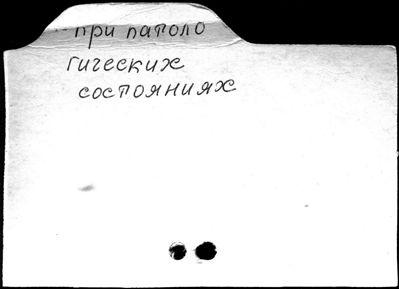 при патоло
гических
состояниях